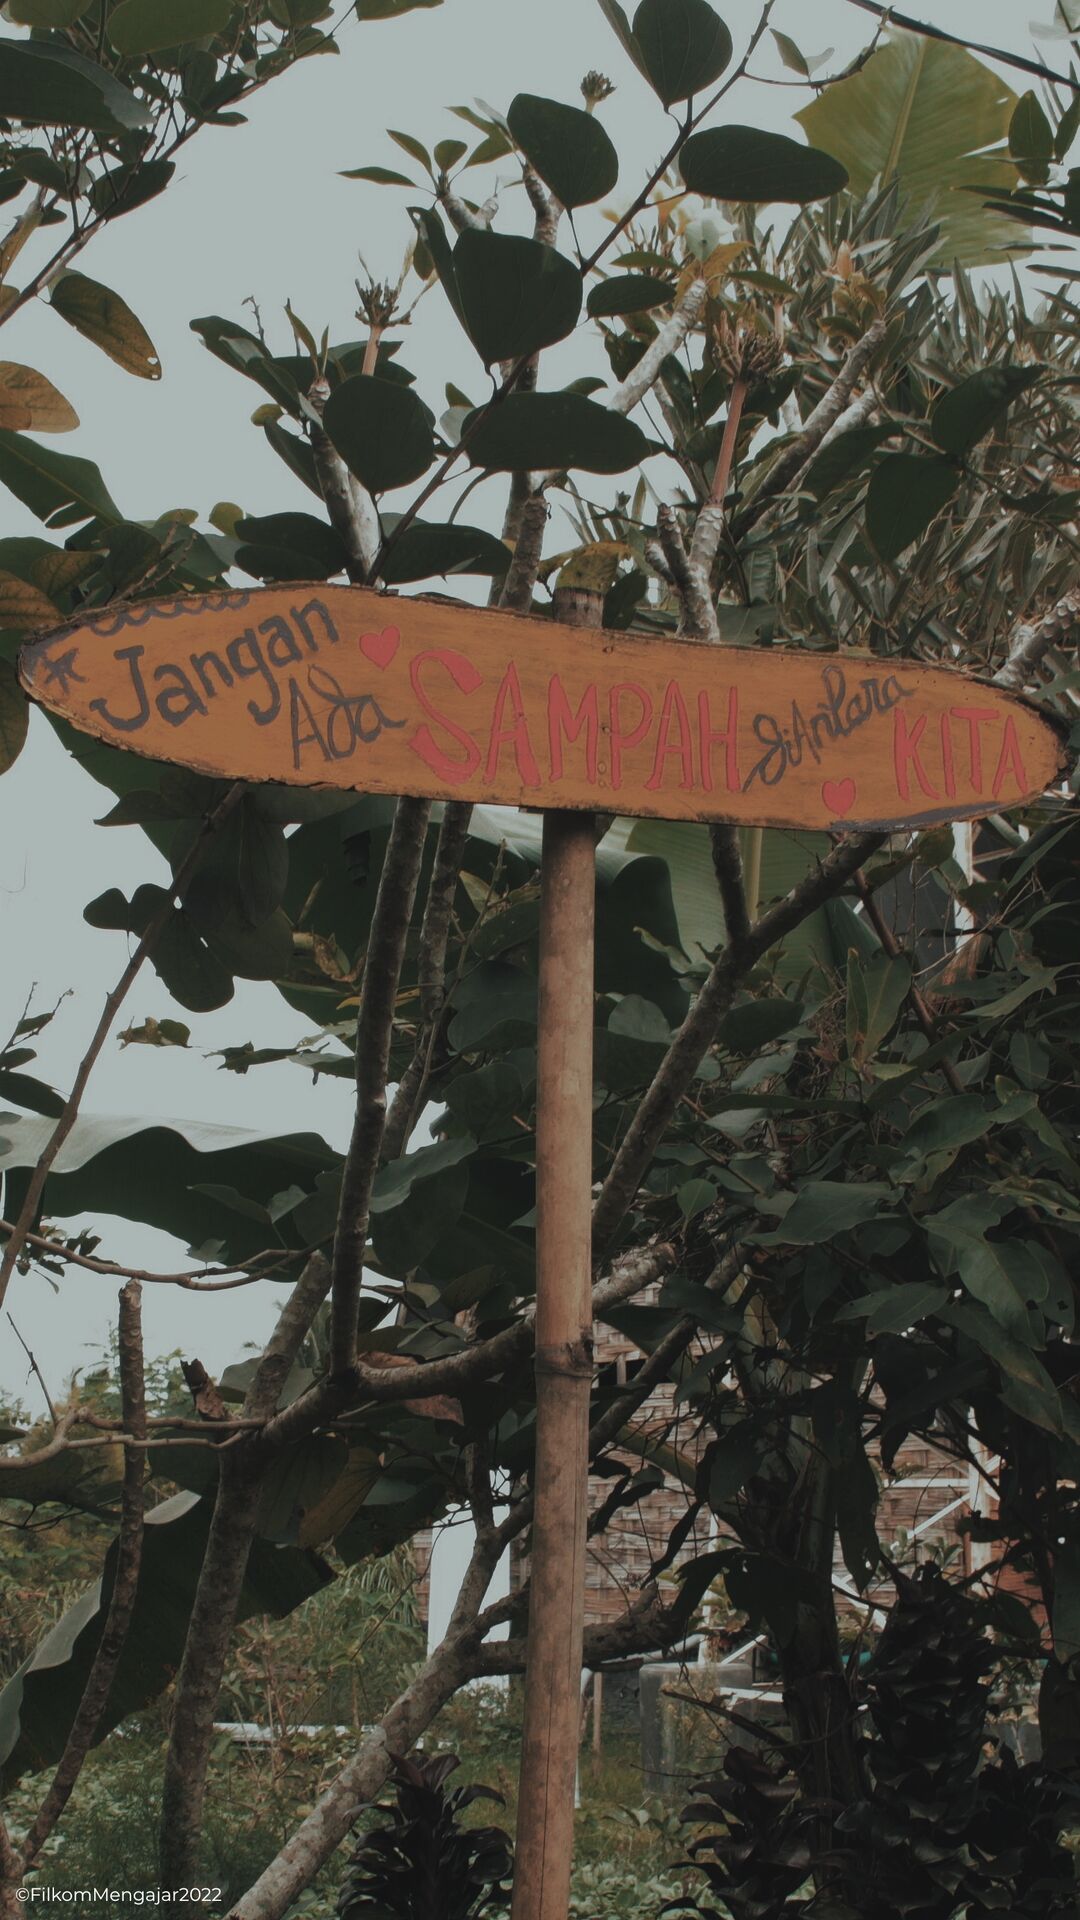 Jangan
Ada SAMPAH diAntara KITA
©FilkomMengajar2022